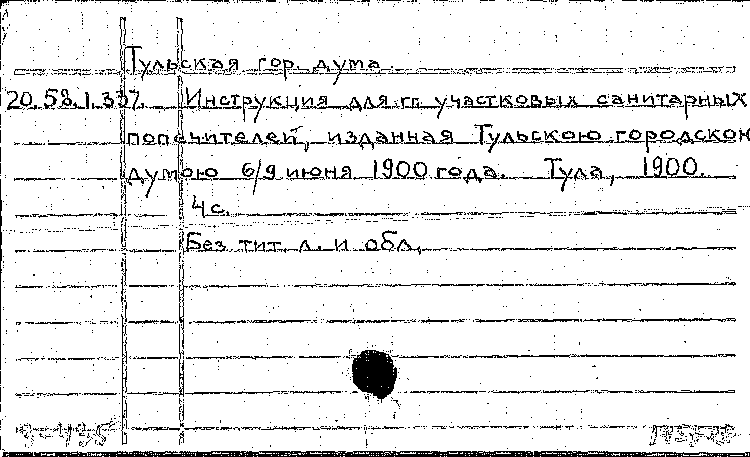 Тульская гор. дума
20.58.1.337. Инструкция для гг. участковых санитарных
попечителей, изданная Тульскою городскою
думою 6/9 июня 1900 года. Тула, 1900.
4 с.
Без тит. л. и обл.